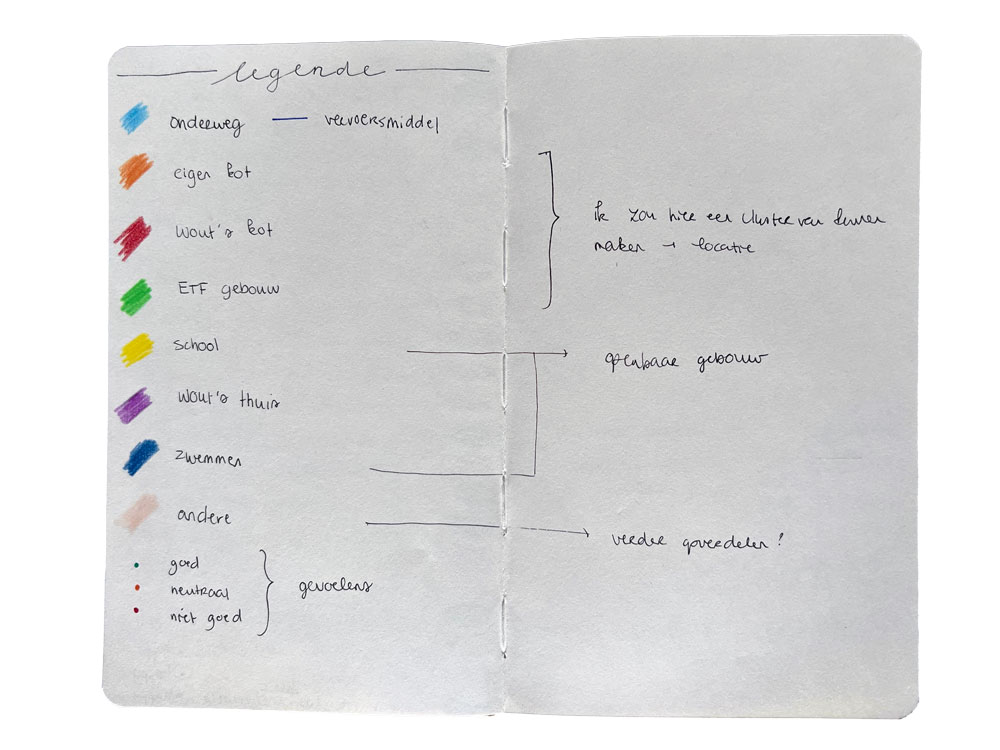 legende
onderweg — vervoersmiddel
eigen kot
Wout's kot
ETF gebouw
School
Wout's thuis
zwemmen
andere
goed
neutraal
niet goed
gevoelens
ik zou hier een cluster van
maken → locatie
openbaar gebouw
verder